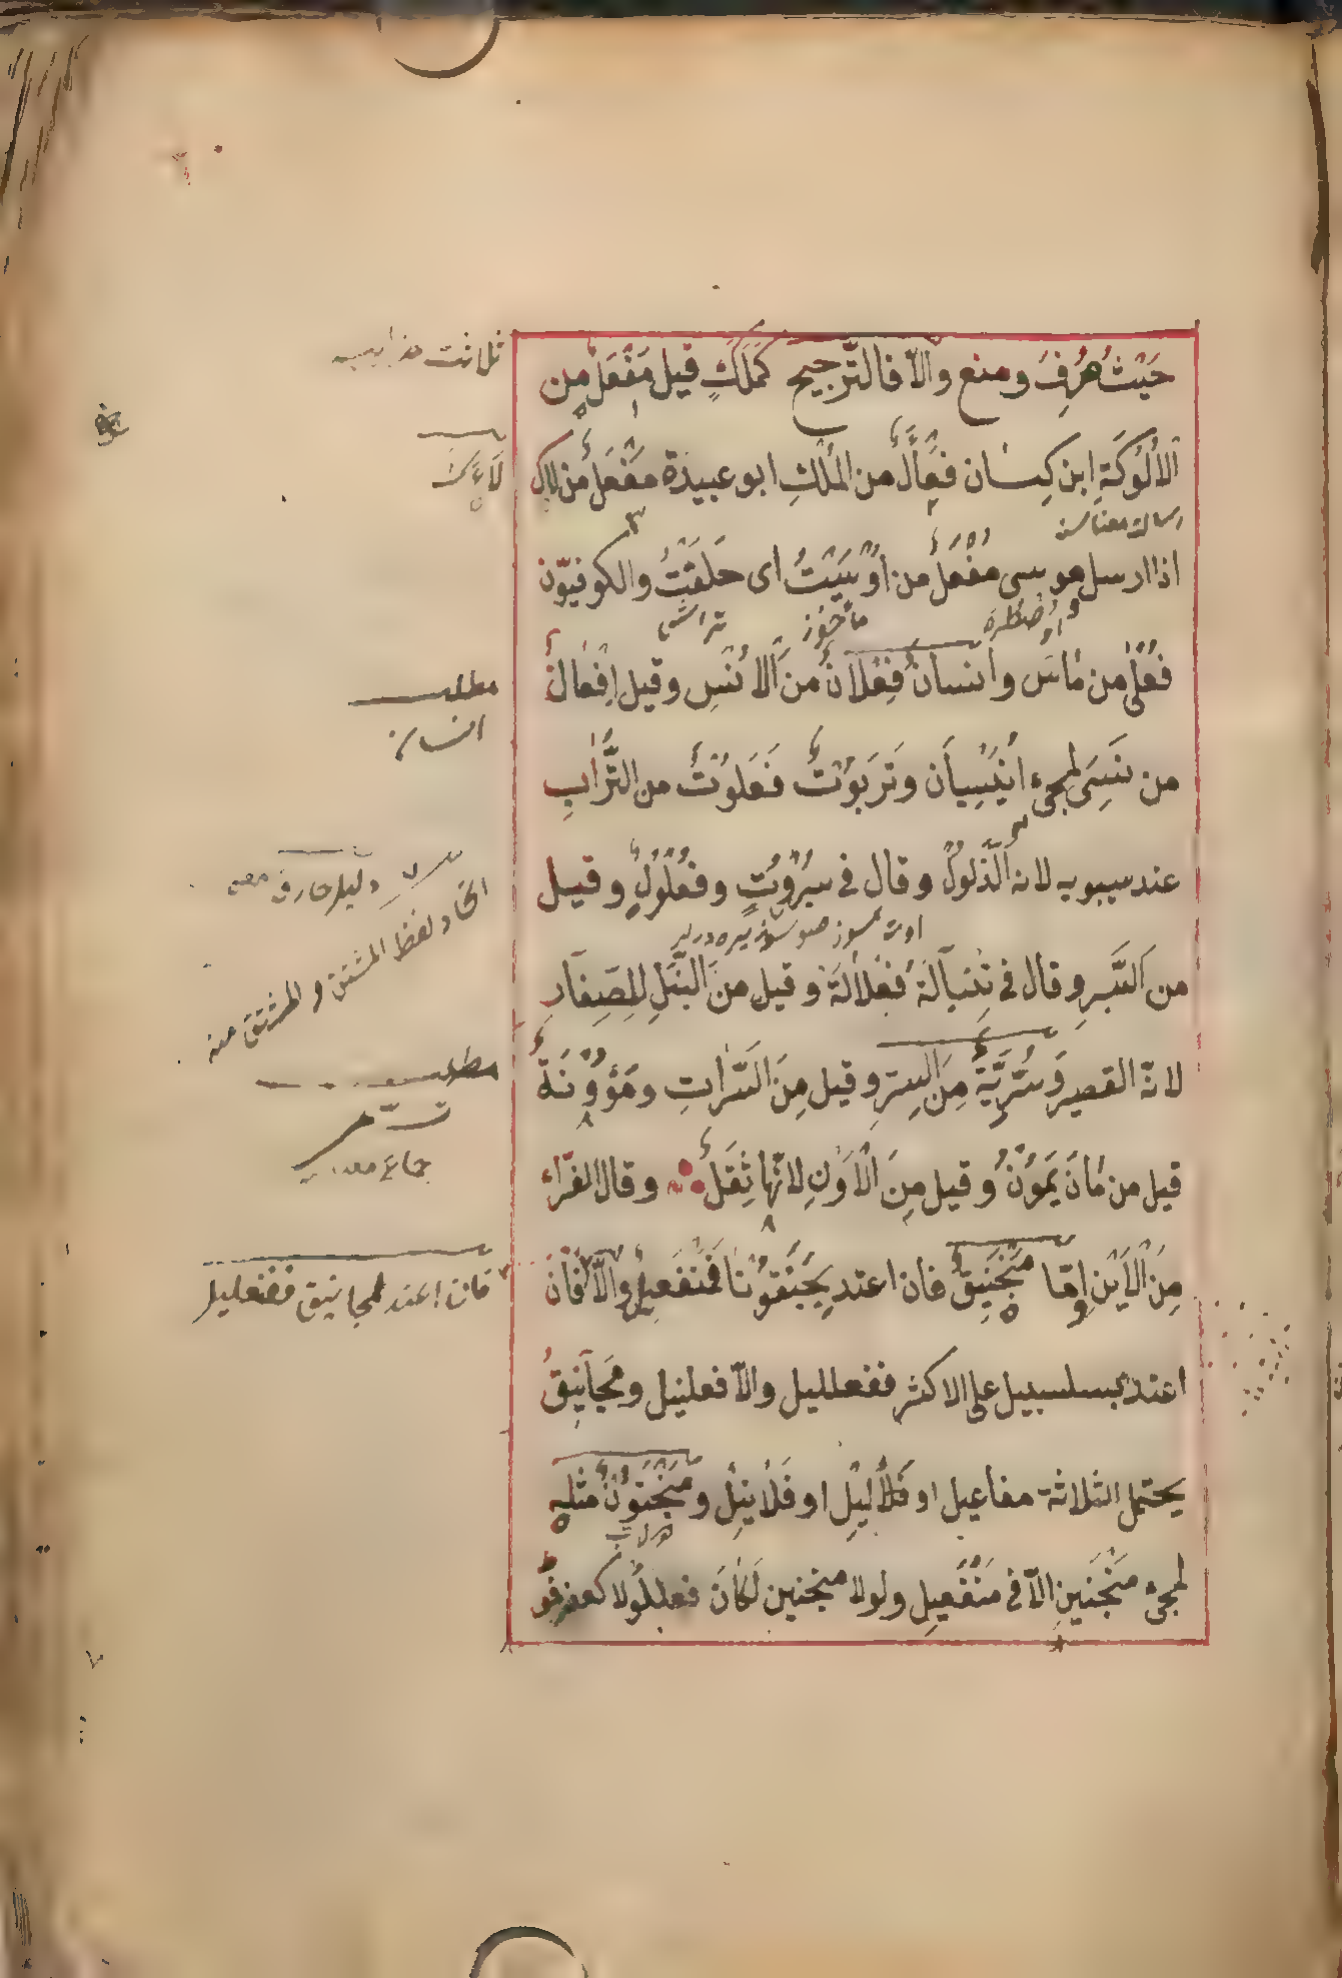 حَيْثُ صُرِفَ ومنع والّا فالتّرجيح كَمَلَكٍ قيل مَفْعَلٌ من
الأَلُوكَةِ ابن كيسان فَعْأَلٌ من المُلْكِ ابو عبيدة مَفْعَلٌ من لاك
اذا ارسل موسى مُفْعَلٌ من اَوْسَيْتُ اى حَلَقْتُ والكوفيّون
فُعْلًى من مَاسَ وانسان فِعْلَانٌ من الأُنْسِ وقيل اِفْعَانٌ
من نَسِىَ لمجىء أُنَيْسِيَان وتَرَبَوُتٌ فَعَلوُتٌ من التُّرَابِ
عند سيبويه لانه الذّلولُ وقال فى سُبْرُوتٍ وفُعْلُولٌ وقيل
من السَّبْرِ وقال فى تِنْبَالَةٌ فِعْلَالَةٌ وقيل من النَّبَلِ للصِغَارِ
لانّه القصير وسُرِّيَّةٌ مِنَ السِرِّ وقيل مِنَ السَّرَاتِ ومَؤُونَةٌ
قيل من مَانَ يَمُوُنُ وقيل مِنَ الأَوْنِ لانّها ثِقَلٌ وقال الفرّاء
مِنَ الأَيْنِ وامّا مَنْجَنِيقٌ فان اعتد بِجَنَقُونَا فَمَنْفَعِيلٌ والّا فان
اعتدّ بسلسبيل على الاكثر ففعلليل والّا فعلنيل ومَجَانِيقُ
يحتمل الثلاثة مفاعيل او فَلَالِيلِ او فَلَانِيلِ ومَنْجَنُونٌ مثله
لمجىء مَنْجَنَين الّا فى مَنْفَعِيلِ ولولا منجنين لَكَانَ فعللولا كعضرفوط
رسالة معناسنه
مأخوذ
ثلاثت مذاهب
لَاءَكَ
مطلب
انسان
اتحاد لفظ المشتق والمشتق منه
مطلب
فان اعتد لمجانيق ففنعليل